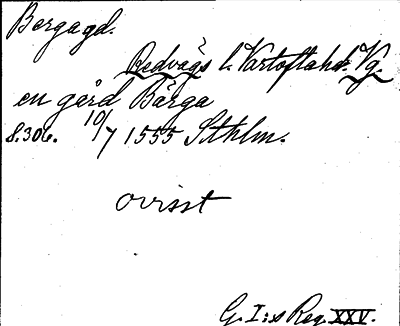 Bergagd.
Redvägs l. Vartoftahd Vg.
en gård Bärga
8.306. 10/7 1555 Sthlm.
ovisst
G. I:s Reg. XXV.